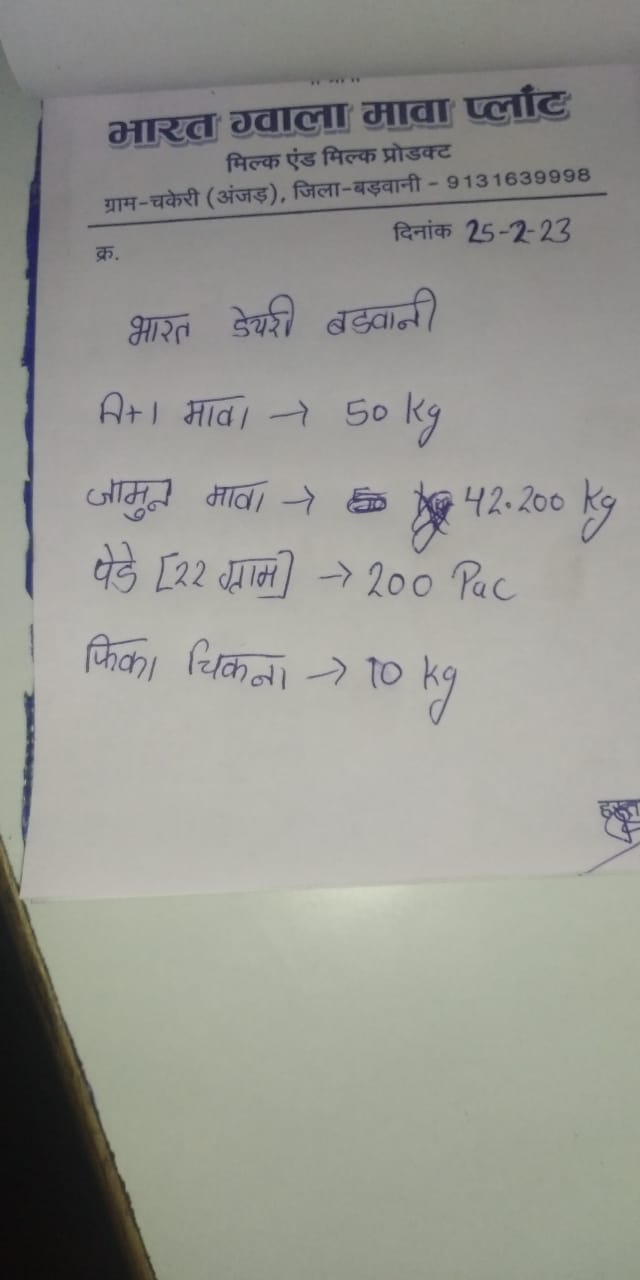 भारत ग्वाला मावा प्लांट
मिल्क एंड मिल्क प्रोडक्ट
ग्राम-चकेरी (अंजड़), जिला-बड़वानी - 9131639998
क्र. दिनांक 25-2-23
भारत डेयरी बडवानी
मावा → 50 kg
जामुन मावा → 42.200 kg
पेडे [22 ग्राम] → 200 Pac
फिका चिकना → 10 kg